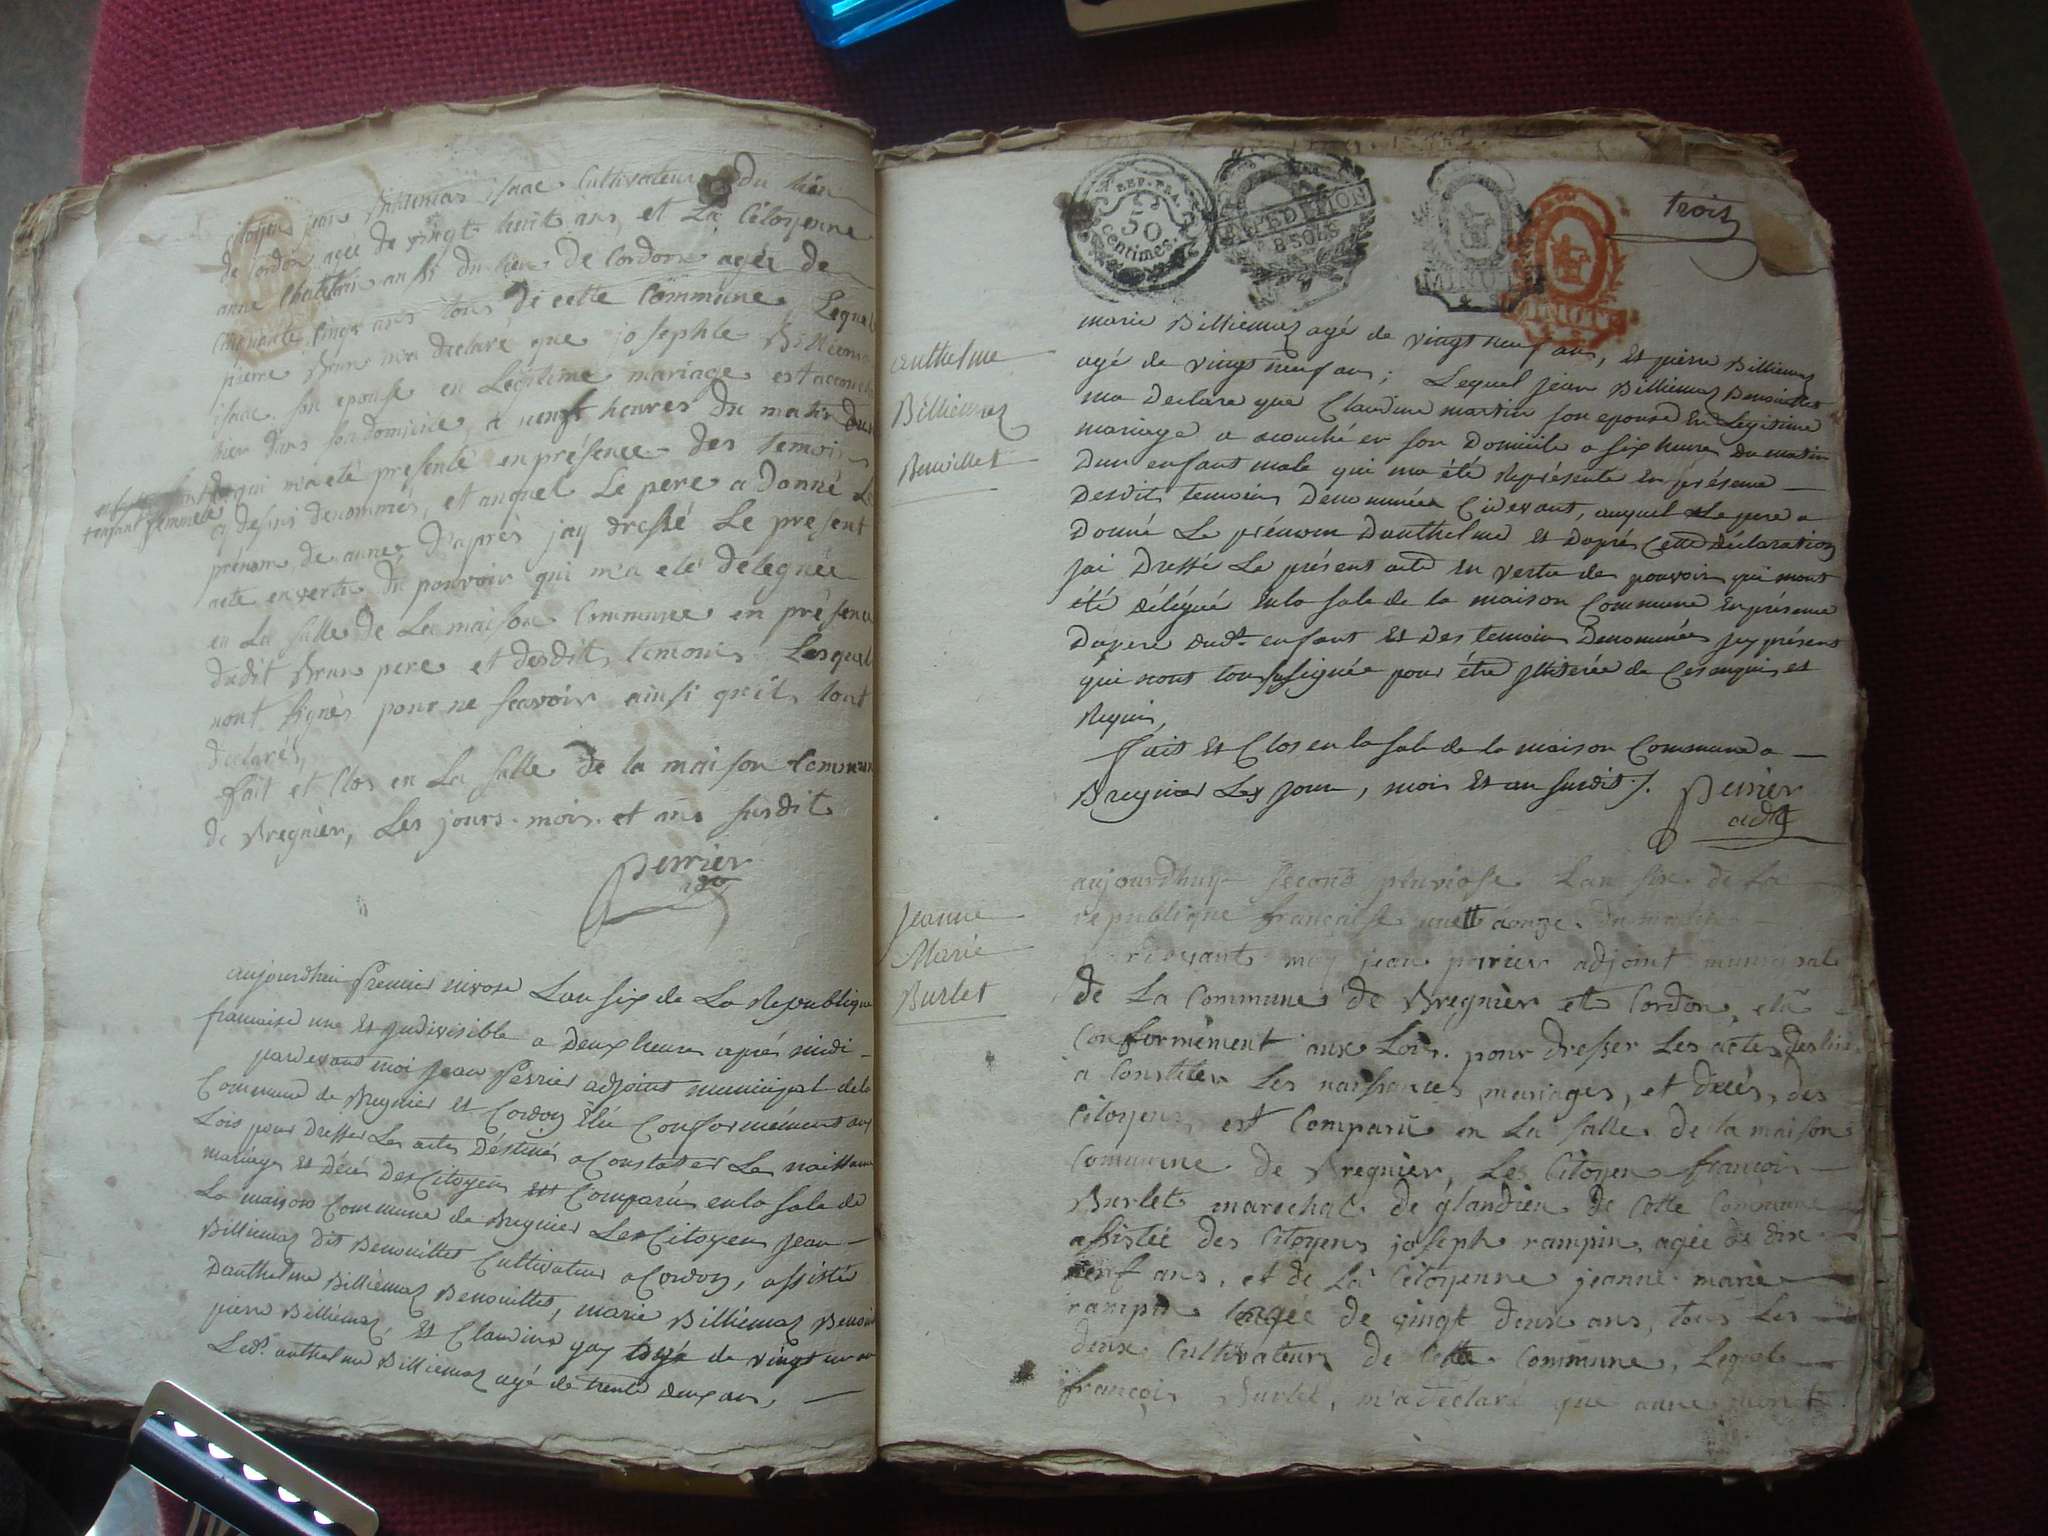 citoyen jean Billiemas isaac Cultivateur du lieu
de Cordon agée de vingt huit ans, et La Citoyenne
anne Chatelain aussi du lieu De Cordon agée de
Cinquante Cinq ans tous de cette Commune Lequel
pierre Brun m'a declaré que josephte Billiemas
isaac son epouse en Légitime mariage est accouché
hier dans son domicile, a neuf heures du matin dun
qui m'a été presenté en présence des temoins
enfant femmelle
cy dessus denommés, et auquel Le pere a Donné Le
prénom de anne, d'après jay dressé Le present
acte en vertu du pouvoir qui m'a été délegué
en La salle de La maison Commune en présence
dudit Brun pere et desdits temoins Lesquels
nont signés pour ne scavoir ainsi qu'ils lont
declarés,
fait et Clos en La salle de la maison Commune
de Bregnier, Les jours mois et an susdit
Perrier
adjt
aujourdhui Premier nivose Lan six de La Republique
francaise une Et Indivisible a Deux heures aprés midi
pardevant moi Jean Perrier adjoint municipal de la
Commune de Bregnier Et Cordon élu Conformément aux
Lois pour Dresser Les actes Déstinés a Constater Les naissances
mariages Et Décés Des Citoyens Est Comparu en la sale de
La maison Commune de Bregnier Les Citoyens jean
Billiemaz dit Benouillet Cultivateur a Cordon, assisté
Danthelme Billiemaz Benouillet, marie Billiemaz Benouillet
pierre Billiemaz, Et Claudine gay agé de vingt un ans
Ledt. anthelme Billiemaz agé de trente deux ans,
REP. FRA.
50
centimes
EXPEDITION
8 SOLS
MINUTE
4 S
MINUTE
trois
anthelme
Billiemaz
Benuillet
marie Billiemaz agé de vingt neuf ans, Et pierre Billiemaz
agé de vingt neuf ans; Lequel jean Billiemaz Benouillet
ma Declare que Claudine martin son epouse En Legitime
mariage a acouché en son Domicile a six heures Du matin
Dun enfant male qui ma été Représenté En présence
Desdits temoins Denommées Cidevant, auquel Le pere a
Donné Le prénom Danthelme Et Daprés Cette Déclaration
jai Dressé Le présent acte En vertu des pouvoirs qui mont
été délégué en la sale de la maison Commune En présence
Du pere dudt. enfant Et Des temoins Denommées y présent
qui nont tous signée pour étre illiterée de Ces enquis et
Requis,
Fait Et Clos en la sale de la maison Commune a
Bregnier Les jour, mois Et an susdit /.
Perrier
adjt
Jeanne
Marie
Burlet
aujourdhuy second pluviose Lan six de La
republique française une aonze du matin
pardevant moy jean perrier adjoint municipal
de La Commune de Bregnier et Cordon, élu
Conformément aux Lois pour dresser Les actes destinés
à Constater Les naissances, mariages, et décés, des
Citoyens, est Comparu en La salle de la maison
Commune de Bregnier, Le Citoyen françois
Burlet marechal de glandieu de Cette Commune
assistée des Citoyens joseph rampin, agée de dix
neuf ans, et de La Citoyenne jeanne marie
rampin agée de vingt deux ans, tous Les
deux Cultivateurs de Cette Commune, Lequel
françois Burlet, m'a declaré que anne